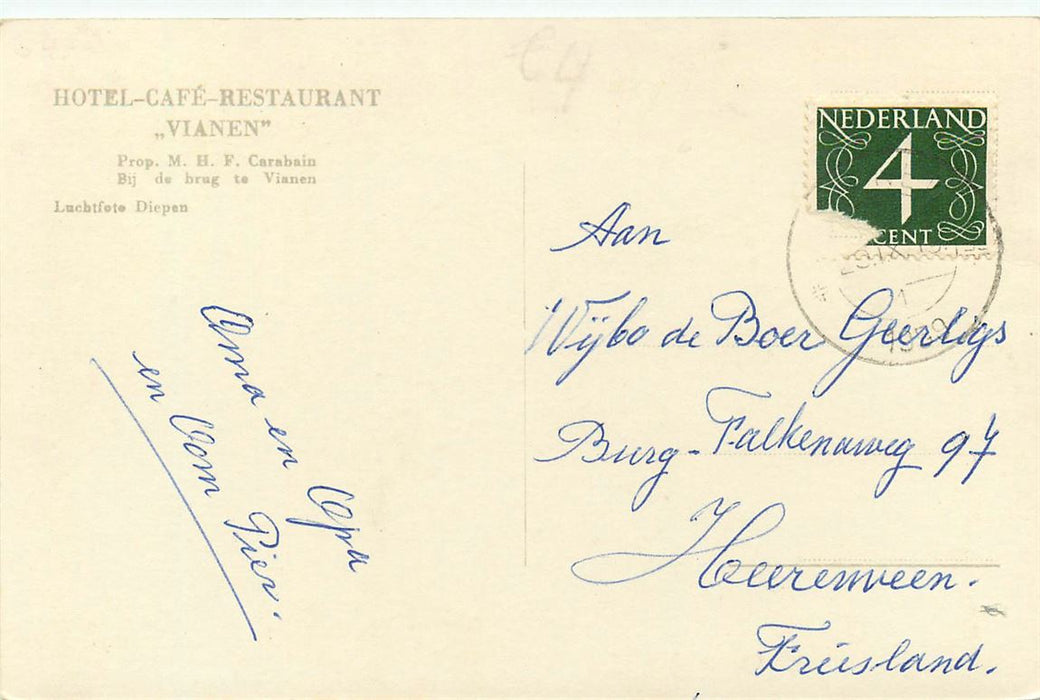 HOTEL-CAFÉ-RESTAURANT
„VIANEN”
Prop. M. H. F. Carabain
Bij de brug te Vianen
Luchtfoto Diepen
NEDERLAND
4
CENT
Aan
Wijbo de Boer Geerligs
Burg-Falkenaweg 97
Heerenveen.
Friesland.
Oma en Opa
en Oom Pier.